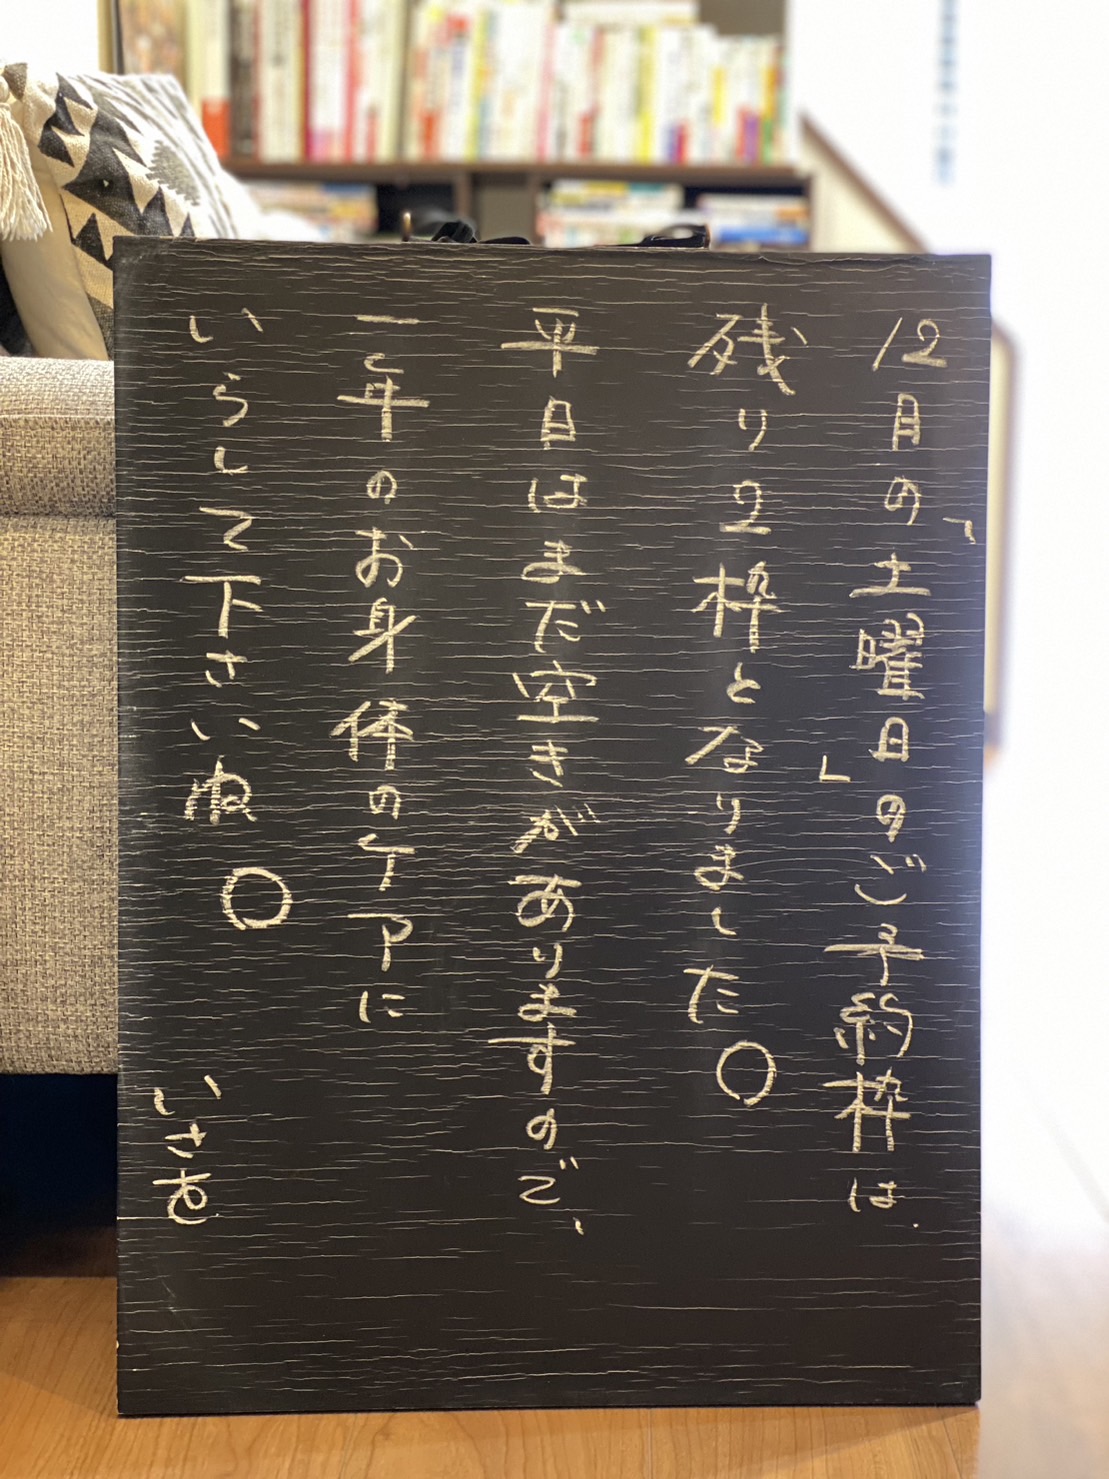 12月の「土曜日」のご予約枠は、
残り2枠となりました。
平日はまだ空きがありますので、
一年のお身体のケアに
いらして下さいね。
いさを